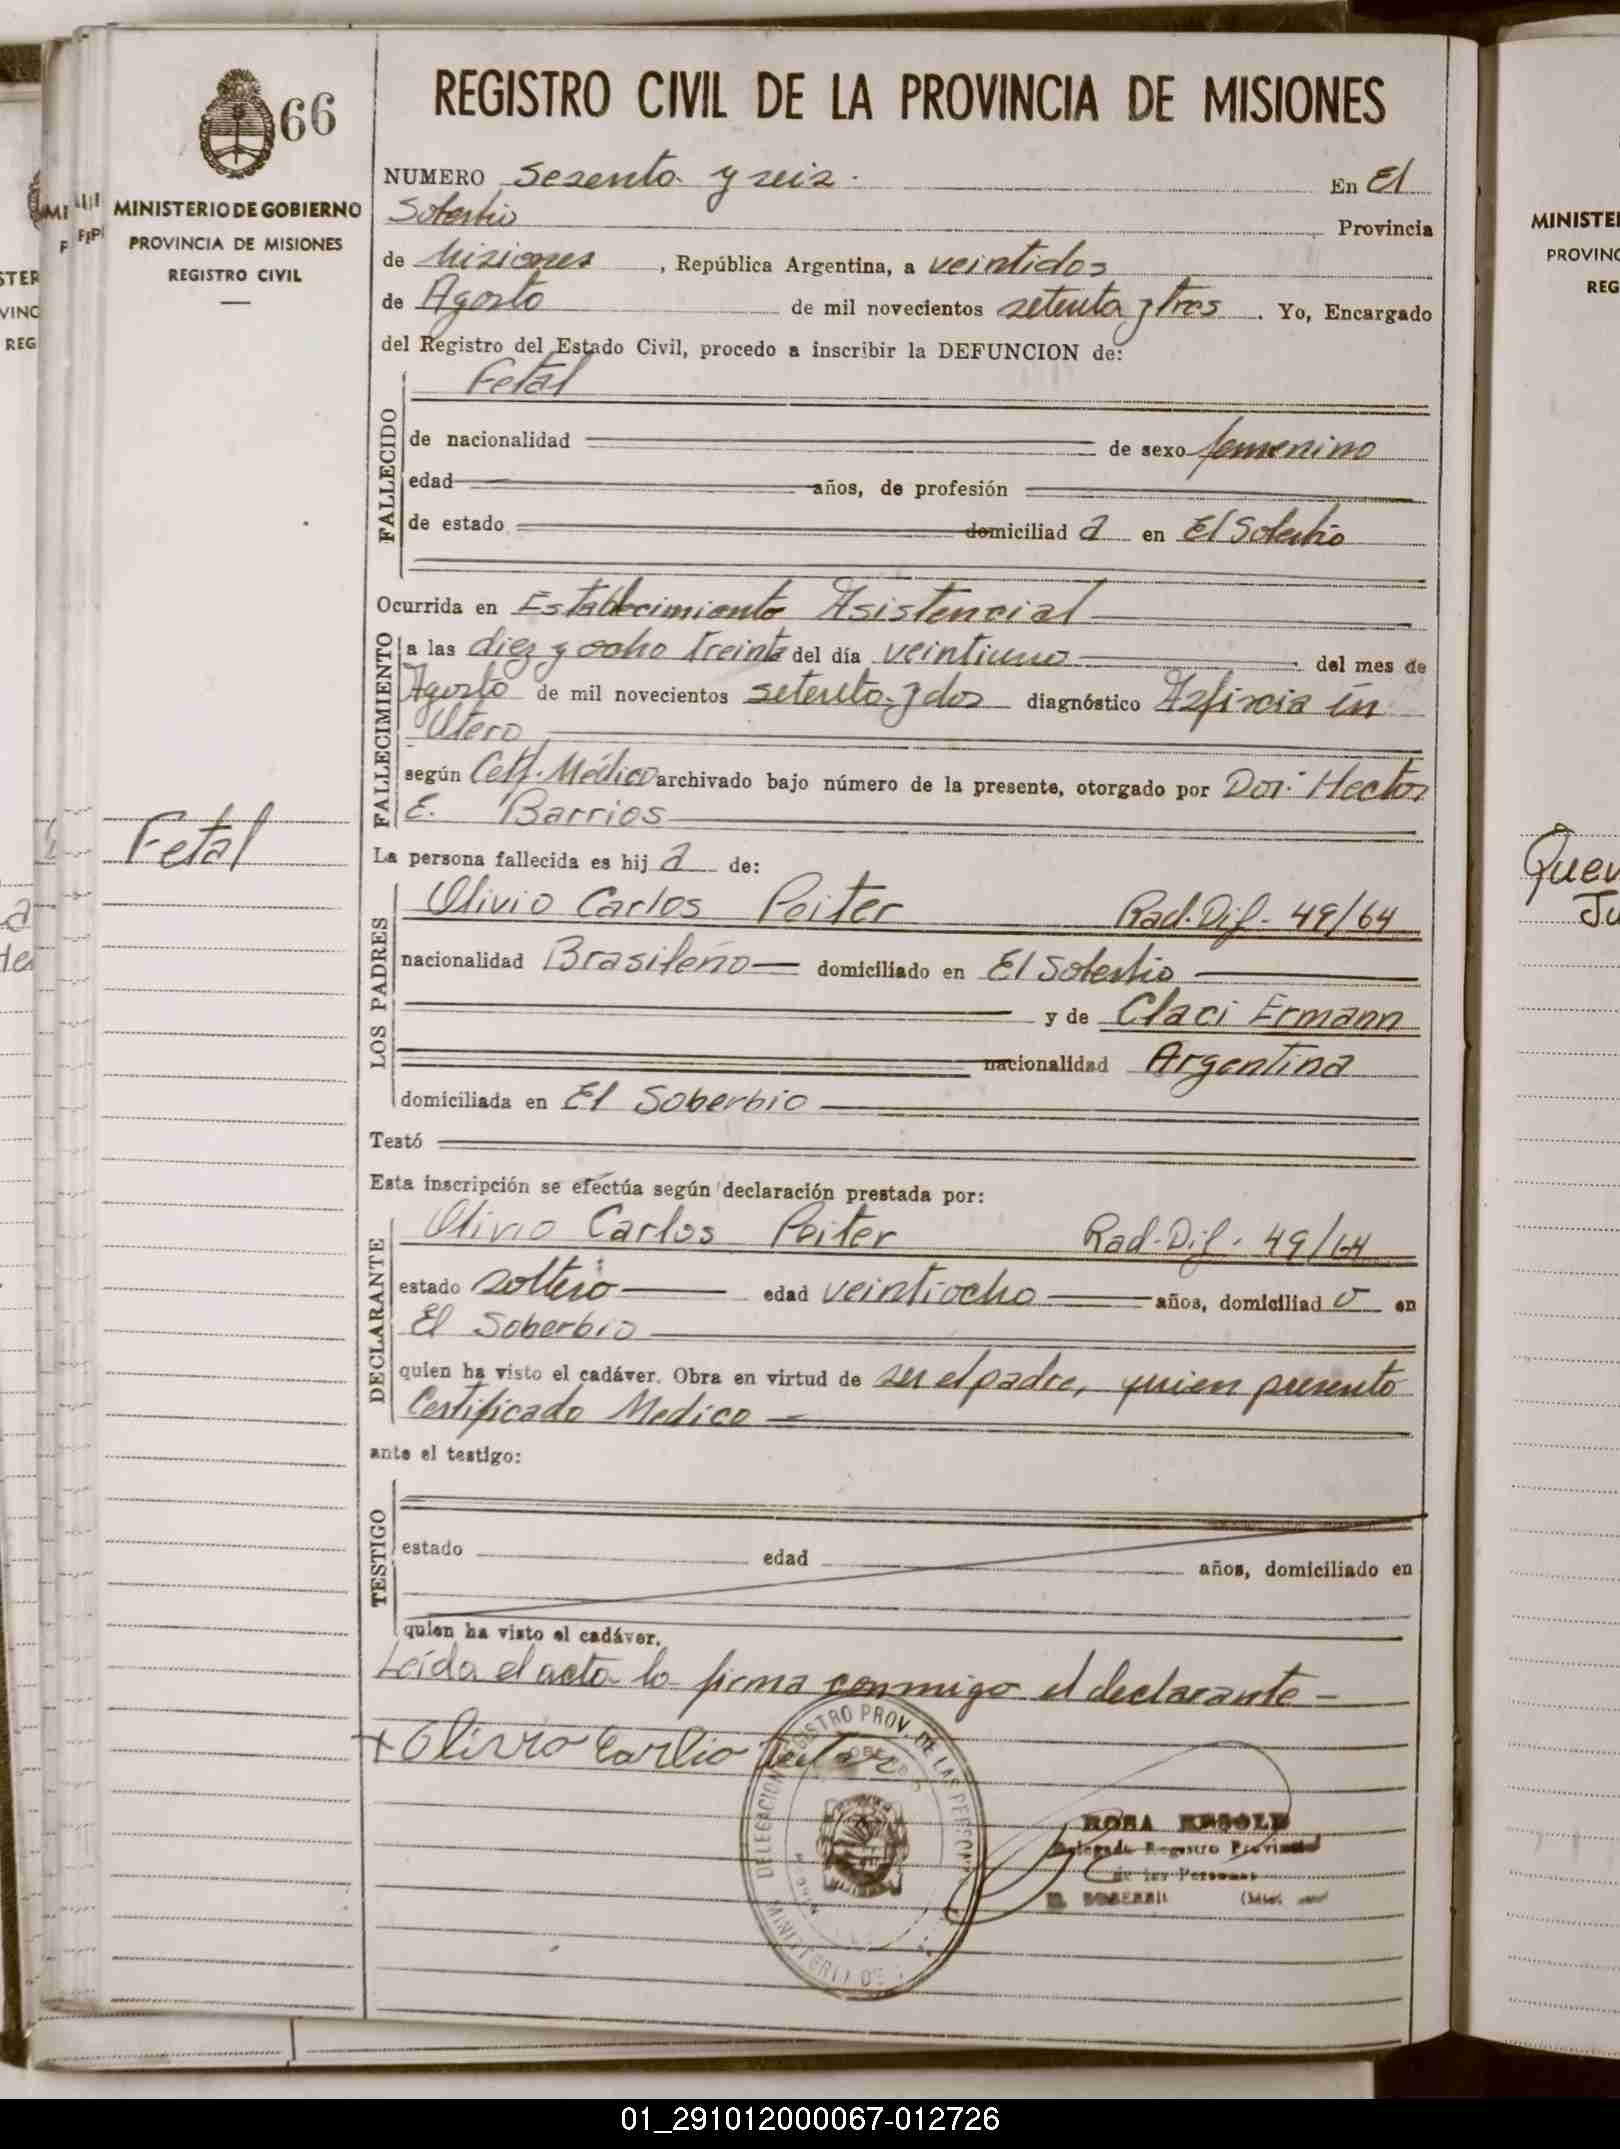 66
REGISTRO CIVIL DE LA PROVINCIA DE MISIONES
MINISTERIO DE GOBIERNO
PROVINCIA DE MISIONES
REGISTRO CIVIL
NUMERO Sesenta y seis. En El
Soberbio Provincia
de Misiones, República Argentina, a veintidos
de Agosto de mil novecientos setenta y tres. Yo, Encargado
del Registro del Estado Civil, procedo a inscribir la DEFUNCION de:
Fetal
FALLECIDO
de nacionalidad de sexo femenino
edad años, de profesión
de estado domiciliad a en El Soberbio
Ocurrida en Establecimiento Asistencial
FALLECIMIENTO
a las diez y ocho treinta del día veintiuno del mes de
Agosto de mil novecientos setenta y dos diagnóstico Asfixia in
Utero
según Cert. Médico archivado bajo número de la presente, otorgado por Dor. Hector
E. Barrios
Fetal
La persona fallecida es hij a de:
LOS PADRES
Olivio Carlos Peiter Rad. Dif. 49/64
nacionalidad Brasileño domiciliado en El Soberbio
y de Claci Ermann
nacionalidad Argentina
domiciliada en El Soberbio
Testó
Esta inscripción se efectúa según declaración prestada por:
DECLARANTE
Olivio Carlos Peiter Rad. Dif. 49/64
estado soltero edad veintiocho años, domiciliad o en
El Soberbio
quien ha visto el cadáver. Obra en virtud de ser el padre, quien presento
Certificado Medico
ante el testigo:
TESTIGO
estado edad años, domiciliado en
quien ha visto el cadáver.
Leída el acta lo firma conmigo el declarante
+ Olivio Carlio
DELEGACION REGISTRO PROV. DE LAS PERSONAS
MINISTERIO DE
ROSA
Delegada Registro Provincial
de las Personas
EL SOBERBIO (Mnes.
MINISTE
PROVINC
REG
Quev
Ju
01_291012000067-012726